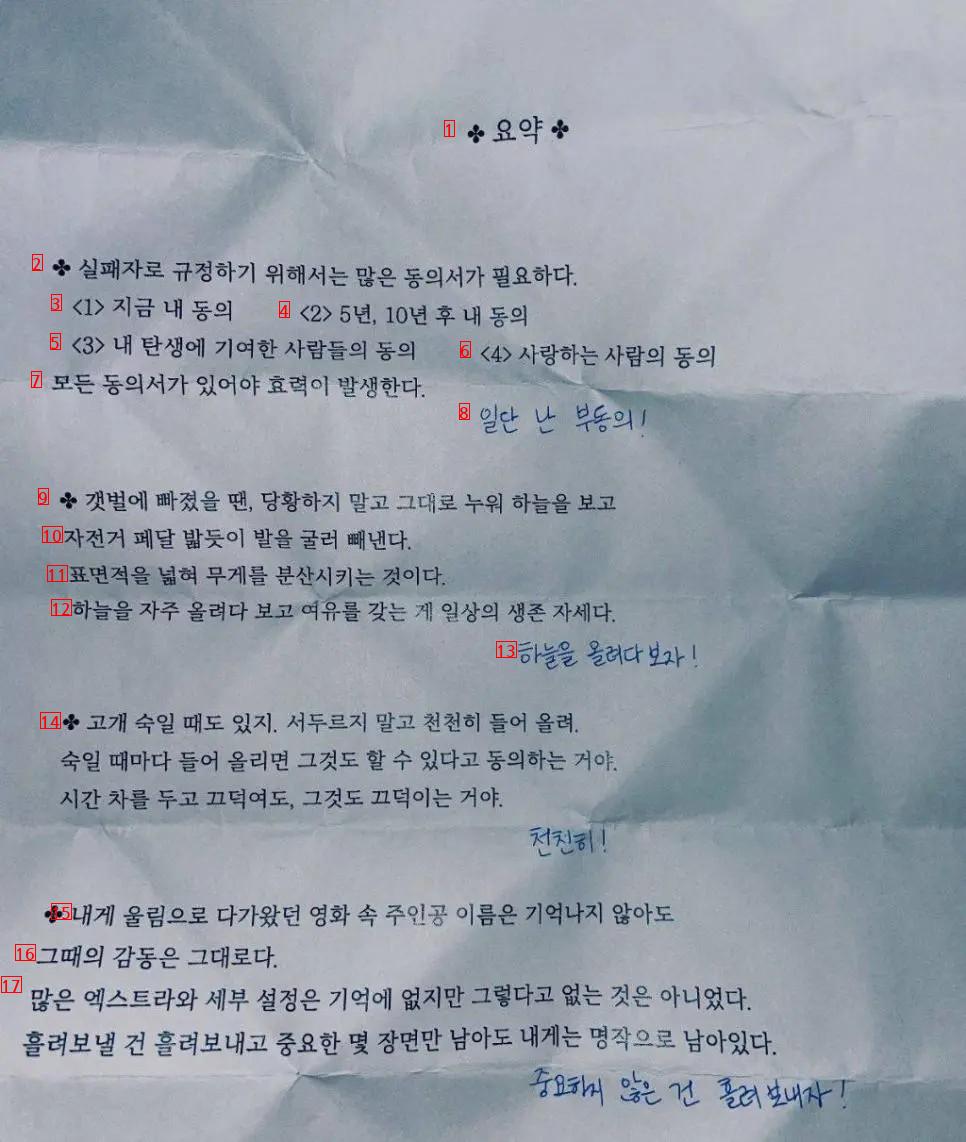 ✤ 요약 ✤
✤ 실패자로 규정하기 위해서는 많은 동의서가 필요하다.
<1> 지금 내 동의 <2> 5년, 10년 후 내 동의
<3> 내 탄생에 기여한 사람들의 동의 <4> 사랑하는 사람의 동의
모든 동의서가 있어야 효력이 발생한다.
일단 난 부동의!
✤ 갯벌에 빠졌을 땐, 당황하지 말고 그대로 누워 하늘을 보고
자전거 페달 밟듯이 발을 굴러 빼낸다.
표면적을 넓혀 무게를 분산시키는 것이다.
하늘을 자주 올려다 보고 여유를 갖는 게 일상의 생존 자세다.
하늘을 올려다보자!
✤ 고개 숙일 때도 있지. 서두르지 말고 천천히 들어 올려.
숙일 때마다 들어 올리면 그것도 할 수 있다고 동의하는 거야.
시간 차를 두고 끄덕여도, 그것도 끄덕이는 거야.
천천히!
✤ 내게 울림으로 다가왔던 영화 속 주인공 이름은 기억나지 않아도
그때의 감동은 그대로다.
많은 엑스트라와 세부 설정은 기억에 없지만 그렇다고 없는 것은 아니었다.
흘려보낼 건 흘려보내고 중요한 몇 장면만 남아도 내게는 명작으로 남아있다.
중요하지 않은 건 흘려보내자!